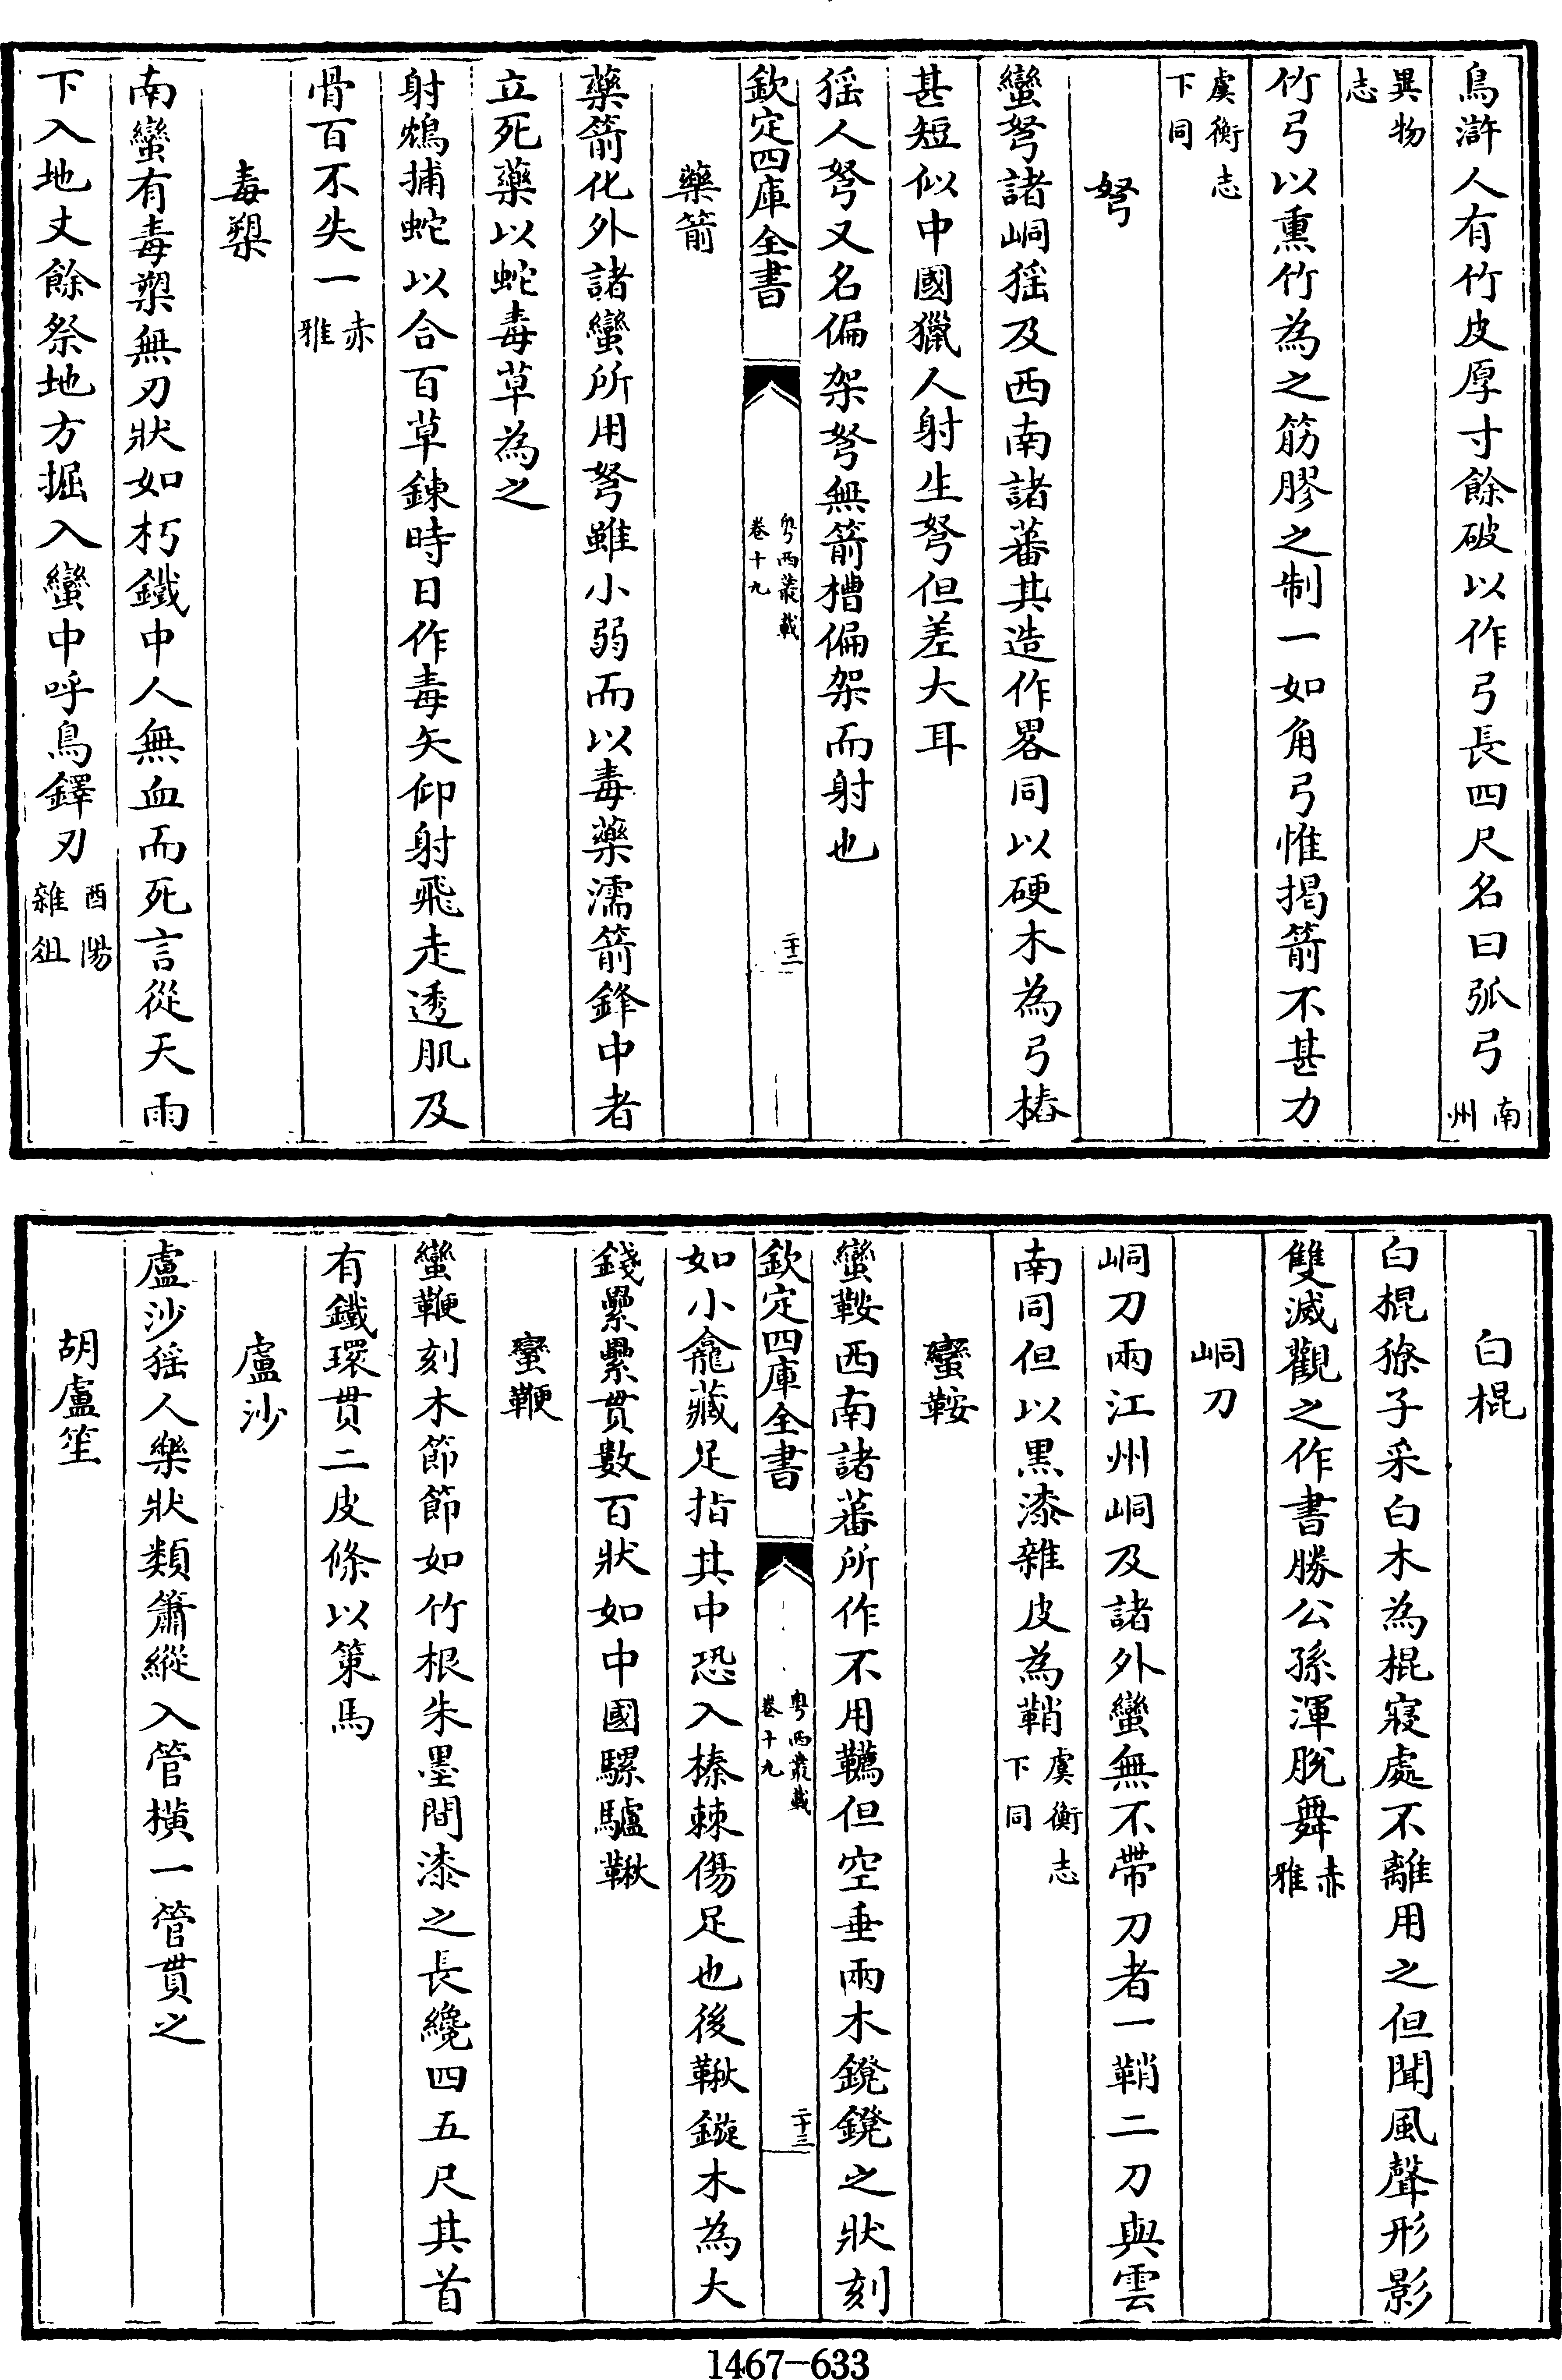 烏滸人有竹皮厚寸餘破以作弓長四尺名曰弧弓南州
異物志
竹弓以熏竹為之筋膠之制一如角弓惟揭箭不甚力
虞衡志下同
弩
蠻弩諸峒猺及西南諸蕃其造作畧同以硬木為弓樁
甚短似中國獵人射生弩但差大耳
猺人弩又名偏架弩無箭槽偏架而射也
欽定四庫全書
粤西叢載
卷十九
二十二
藥箭
藥箭化外諸蠻所用弩雖小弱而以毒藥濡箭鋒中者
立死藥以蛇毒草為之
射鴆捕蛇以合百草鍊時日作毒矢仰射飛走透肌及
骨百不失一赤雅
毒槊
南蠻有毒槊無刃狀如朽鐵中人無血而死言從天雨
下入地丈餘祭地方掘入蠻中呼鳥鐸刃酉陽雜俎
白棍
白棍獠子采白木為棍寢處不離用之但聞風聲形影
雙滅觀之作書勝公孫渾脫舞赤雅
峒刀
峒刀兩江州峒及諸外蠻無不帶刀者一鞘二刀與雲
南同但以黒漆雜皮為鞘虞衡志下同
蠻鞍
蠻鞍西南諸蕃所作不用韉但空垂兩木鐙鐙之狀刻
欽定四庫全書
粤西叢載
卷十九
二十三
如小龕藏足指其中恐入榛棘傷足也後鞦鏇木為大
錢纍纍貫數百狀如中國騾驢鞦
蠻鞭
蠻鞭刻木節節如竹根朱墨間漆之長纔四五尺其首
有鐵環貫二皮條以策馬
盧沙
盧沙猺人樂狀類簫縱入管橫一管貫之
胡盧笙
1467-633